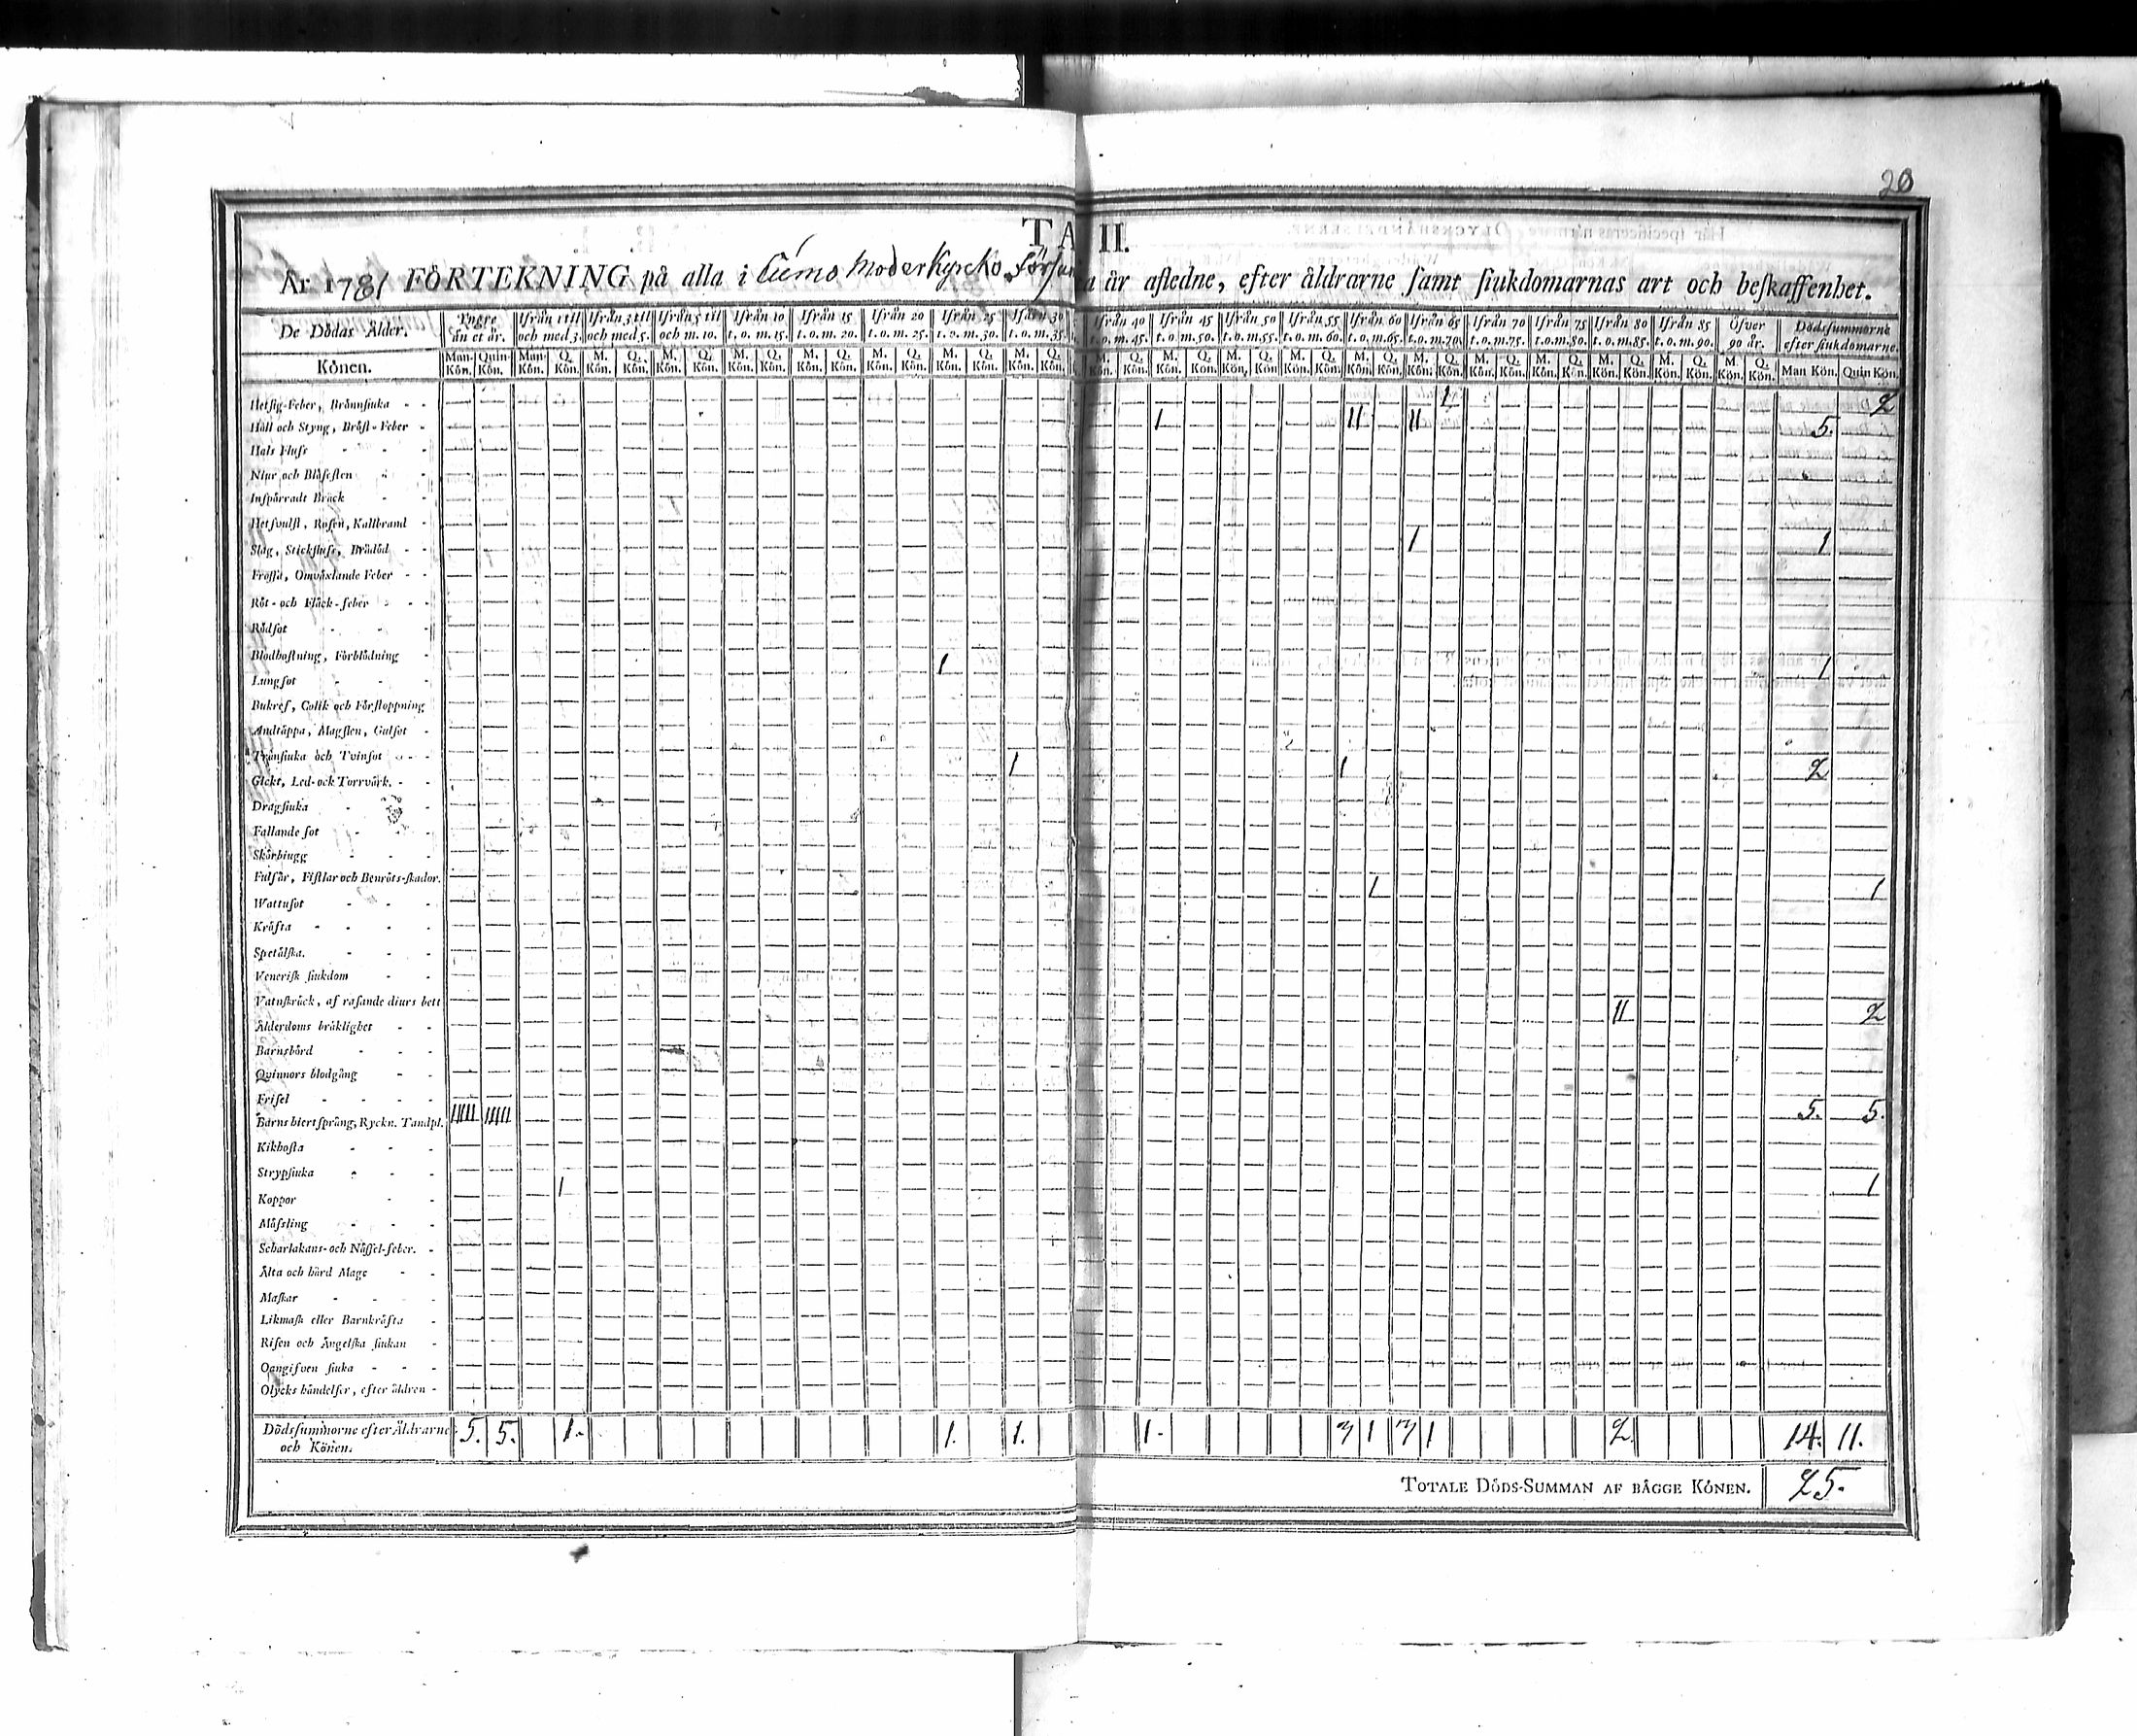 20
TA II.
År 1781 FÖRTEKNING på alla i Cumo Moderkyrcko Förs a år afledne, efter åldrarne samt siukdomarnas art och beskaffenhet.
De Dödas Ålder. Yngre än et år. Ifrån 1 til och med 3. Ifrån 3 til och med 5. Ifrån 5 til och m. 10. Ifrån 10 t. o. m. 15. Ifrån 15 t. o. m. 20. Ifrån 20 t. o. m. 25. Ifrån 25 t. o. m. 30. Ifrån 30 t. o. m. 35. Ifrån 40 t. o. m. 45. Ifrån 45 t. o. m. 50. Ifrån 50 t. o. m. 55. Ifrån 55 t. o. m. 60. Ifrån 60 t. o. m. 65. Ifrån 65 t. o. m. 70. Ifrån 70 t. o. m. 75. Ifrån 75 t. o. m. 80. Ifrån 80 t. o. m. 85. Ifrån 85 t. o. m. 90. Öfver 90 år. Dödssummorne efter siukdomarne.
Könen. Man. Kön. Quin Kön. Man. Kön. Q. Kön. M. Kön. Q. Kön. M. Kön. Q. Kön. M. Kön. Q. Kön. M. Kön. Q. Kön. M. Kön. Q. Kön. M. Kön. Q. Kön. M. Kön. Q. Kön. M. Kön. Q. Kön. M. Kön. Q. Kön. M. Kön. Q. Kön. M. Kön. Q. Kön. M. Kön. Q. Kön. M. Kön. Q. Kön. M. Kön. Q. Kön. M. Kön. Q. Kön. M. Kön. Q. Kön. M. Kön. Q. Kön. M. Kön. Q. Kön. Man Kön. Quin Kön.
Hetsig-Feber, Brännsiuka - - 1 2
Håll och Styng, Bröst-Feber - 1 II II 5.
Hals Fluss
Niur och Blåsesten
Inspärradt Bråck
Hetsvulst, Rosen, Kallbrand
Slag, Stickfluss, Brådöd - - 1 1
Frossa, Omväxlande Feber - -
Röt- och Fläck-feber
Rödsot
Blodhostning, Förblödning
Lungsot 1 1
Bukref, Colik och Förstoppning
Andtäppa, Magsten, Gulsot
Tränsiuka och Tvinsot
Gickt, Led- ock Torrvärk. - 1 1 2
Dragsiuka
Fallande sot
Skörbiugg
Fulsår, Fistlar och Benröts-skador.
Wattusot 1 1
Kräfta
Spetälska.
Venerisk siukdom
Vatnskräck, af rasande diurs bett
Ålderdoms bräklighet - - II 2
Barnsbörd
Quinnors blodgång
Frisel
Barns hiertsprång, Ryckn. Tandpl. IIIII IIIII 5. 5.
Kikhosta
Strypsiuka
Koppor 1 1
Måssling
Scharlakans- och Nässel-feber. -
Älta och hård Mage
Maskar
Likmask eller Barnkräfta
Risen och Ängelska siukan
Oangifven siuka
Olycks händelser, efter åldren -
Dödssummorne efter Åldrarne och Könen. 5. 5. 1.- 1. 1. 1.- 3 1 3 1 2. 14. 11.
TOTALE DÖDS-SUMMAN AF BÄGGE KÖNEN. 25.